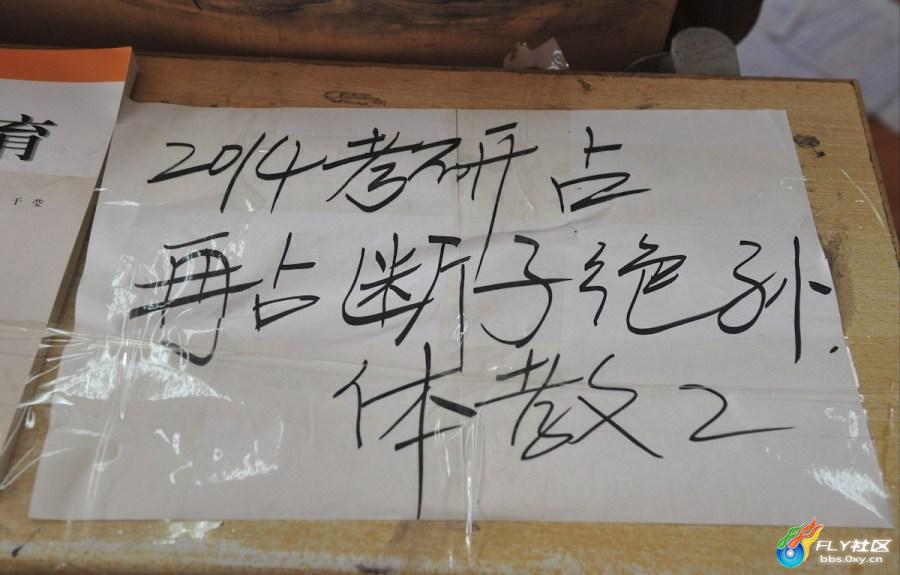 育
于 莹
2014考研占
再占断子绝孙.
体教2
FLY社区
bbs.0xy.cn